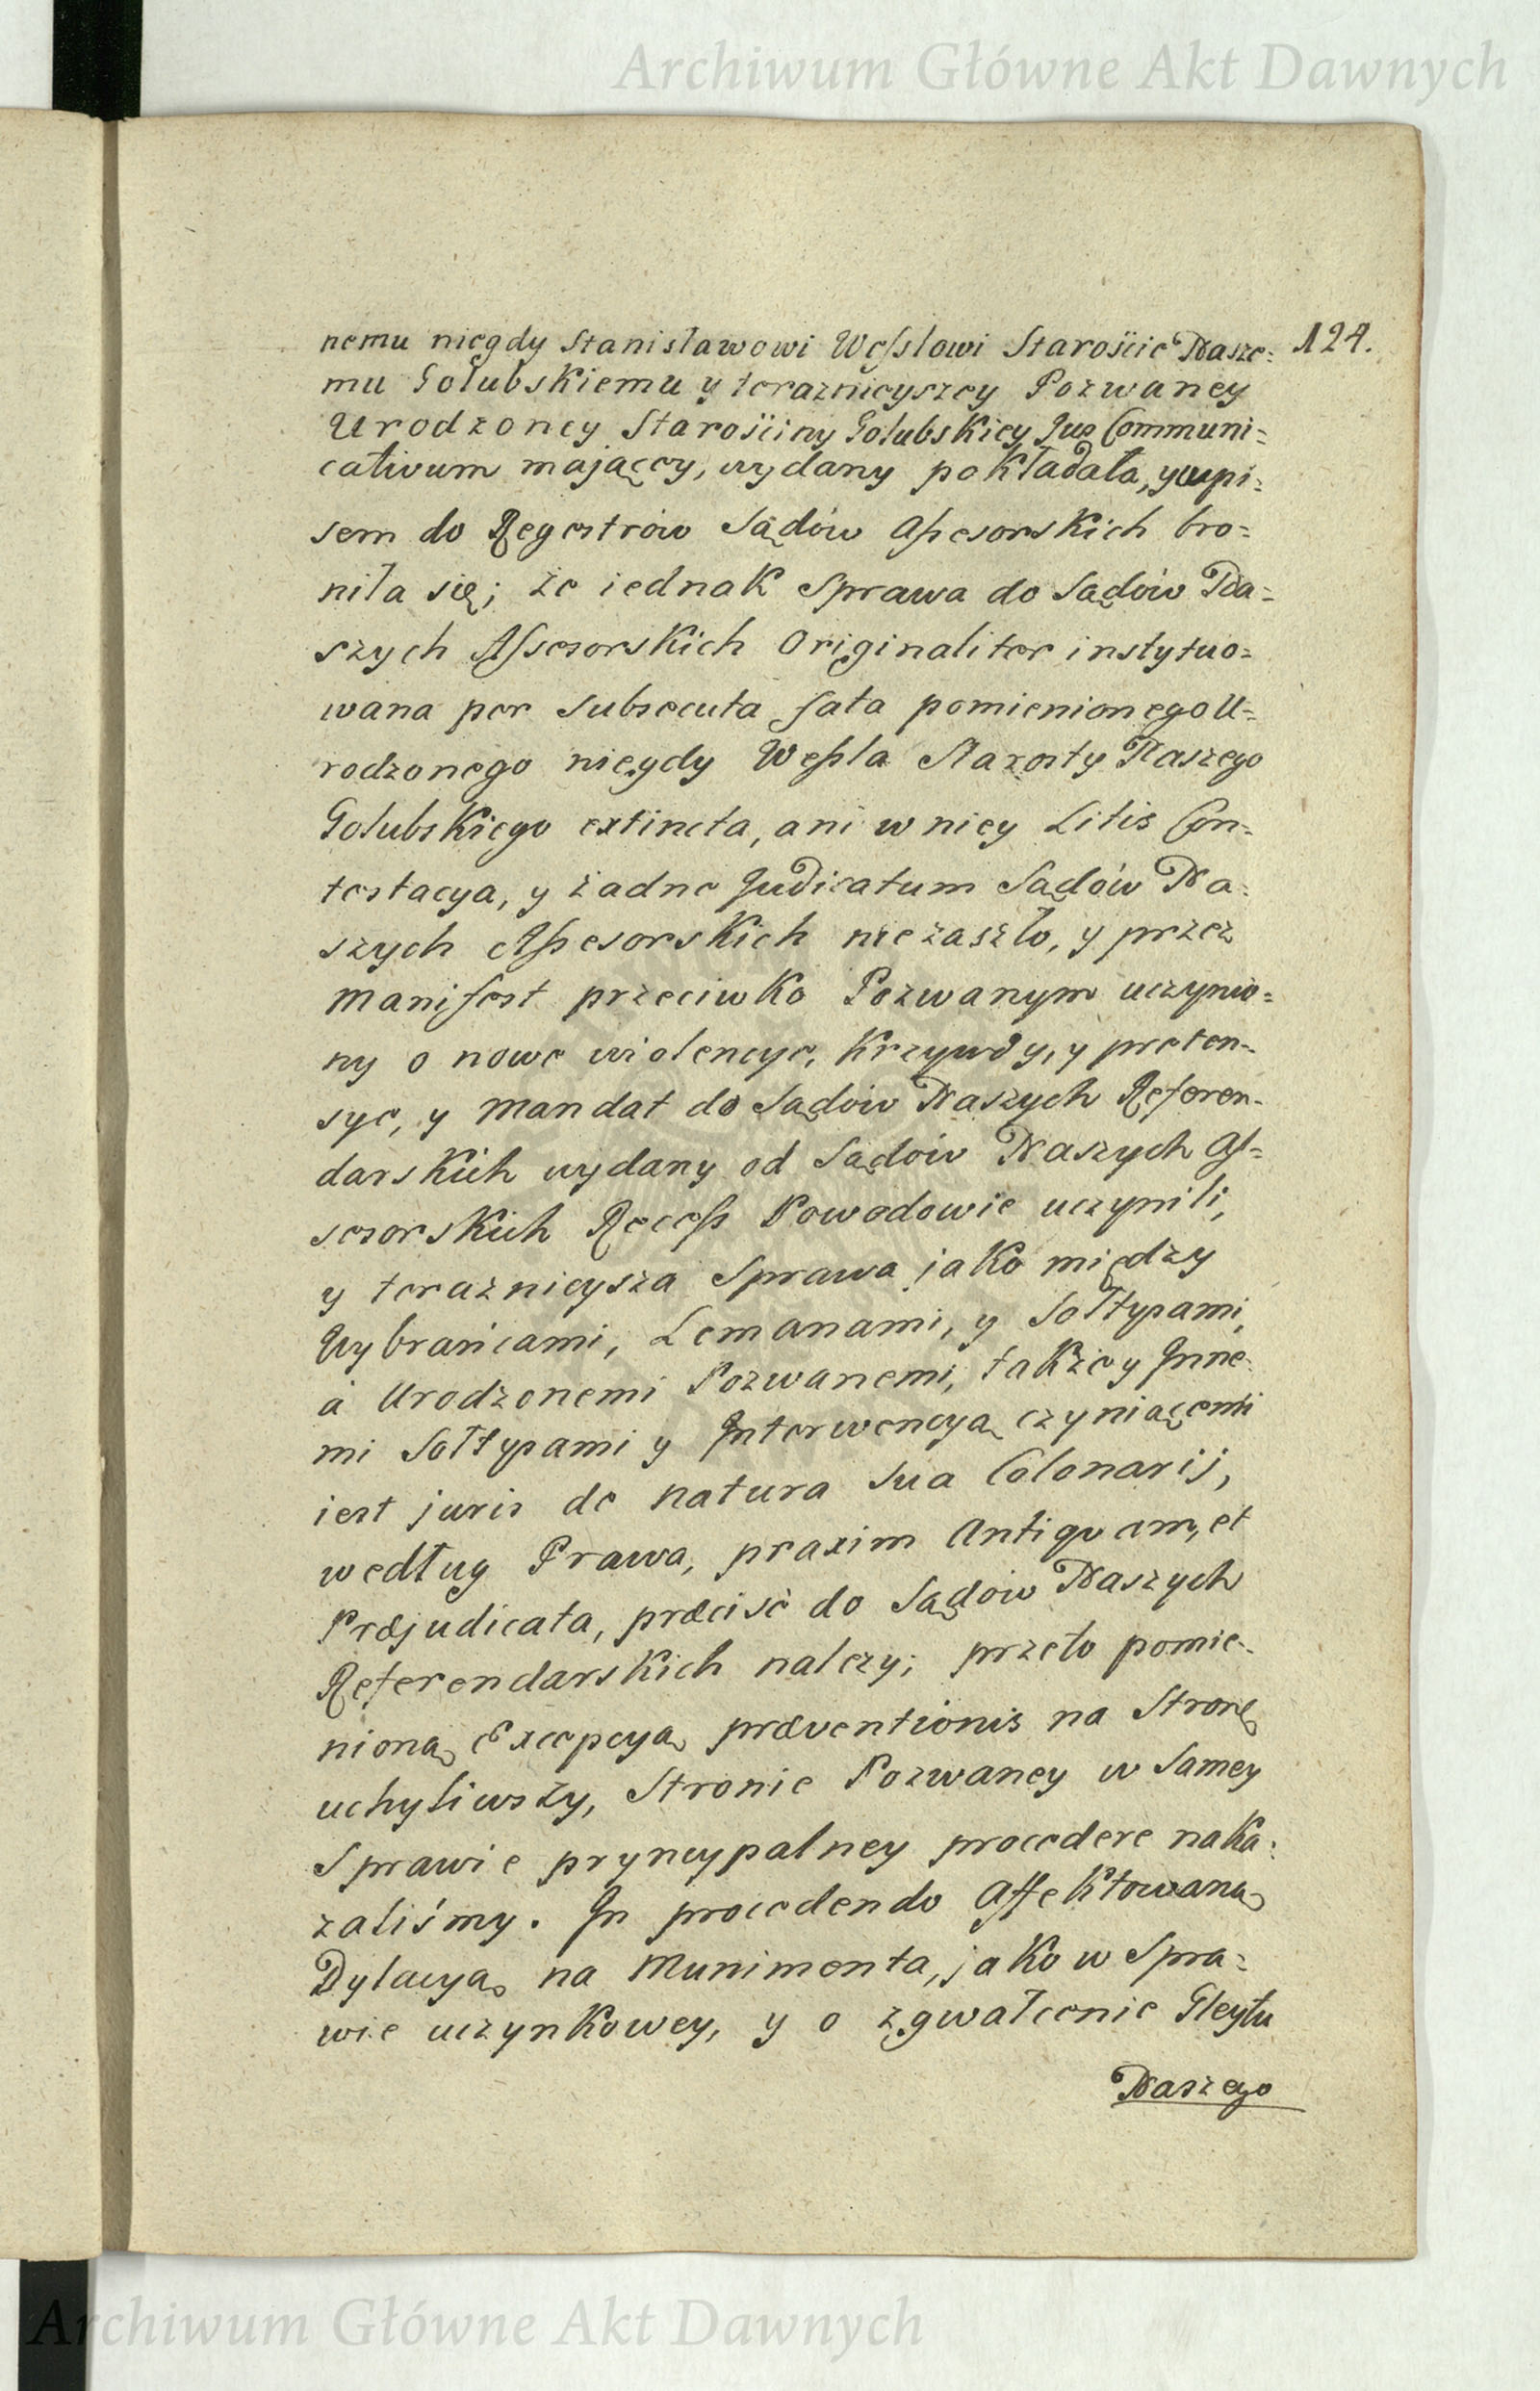 Archiwum Główne Akt Dawnych
124.
nemu niegdy Stanisławowi Wesslowi Starościе Nasze=
mu Golubskiemu y teraznieyszey Pozwaney
Urodzoney Starościny Golubskiey Jus Communi=
cativum maiący, wydany pokładała, y wpi=
sem do Regestrów Sądów Assesorskich bro=
niła się; że iednak Sprawa do Sądów Na=
szych Assesorskich Originaliter instytuo=
wana per subsecuta fata pomienionego U=
rodzonego niegdy Wessla Starosty Naszego
Golubskiego extincta, ani w niey Litis Con=
testacya, y żadne Judicatum Sądów Na=
szych Assesorskich nie zaszło, y przez
Manifest przeciwko Pozwanym uczynio=
ny o nowe violencye, Krzywdy, y preten=
sye, y Mandat do Sądów Naszych Referen=
darskich wydany od Sądów Naszych As=
sesorskich Recess Powodowie uczynili,
y teraznieysza Sprawa jako między
Wybrańcami, Lemanami, y Sołtysami,
á Urodzonemi Pozwanemi, także y Inne=
mi Sołtysami y Interwencyą czyniącemi
iest juris de natura sua Colonarij,
według Prawa, praxim Antiquam, et
Præjudicata, præcisè do Sądów Naszych
Referendarskich należy; przeto pomie=
nioną Excepcyą præventionis na Stronę
uchyliwszy, Stronie Pozwaney w Samey
Sprawie pryncypalney procedere naka=
zaliśmy. In procedendo Affektowaną
Dylacyą na Munimenta, jako w Spra=
wie uczynkowey, y o zgwałcenie Gleytu
Naszego
Archiwum Główne Akt Dawnych